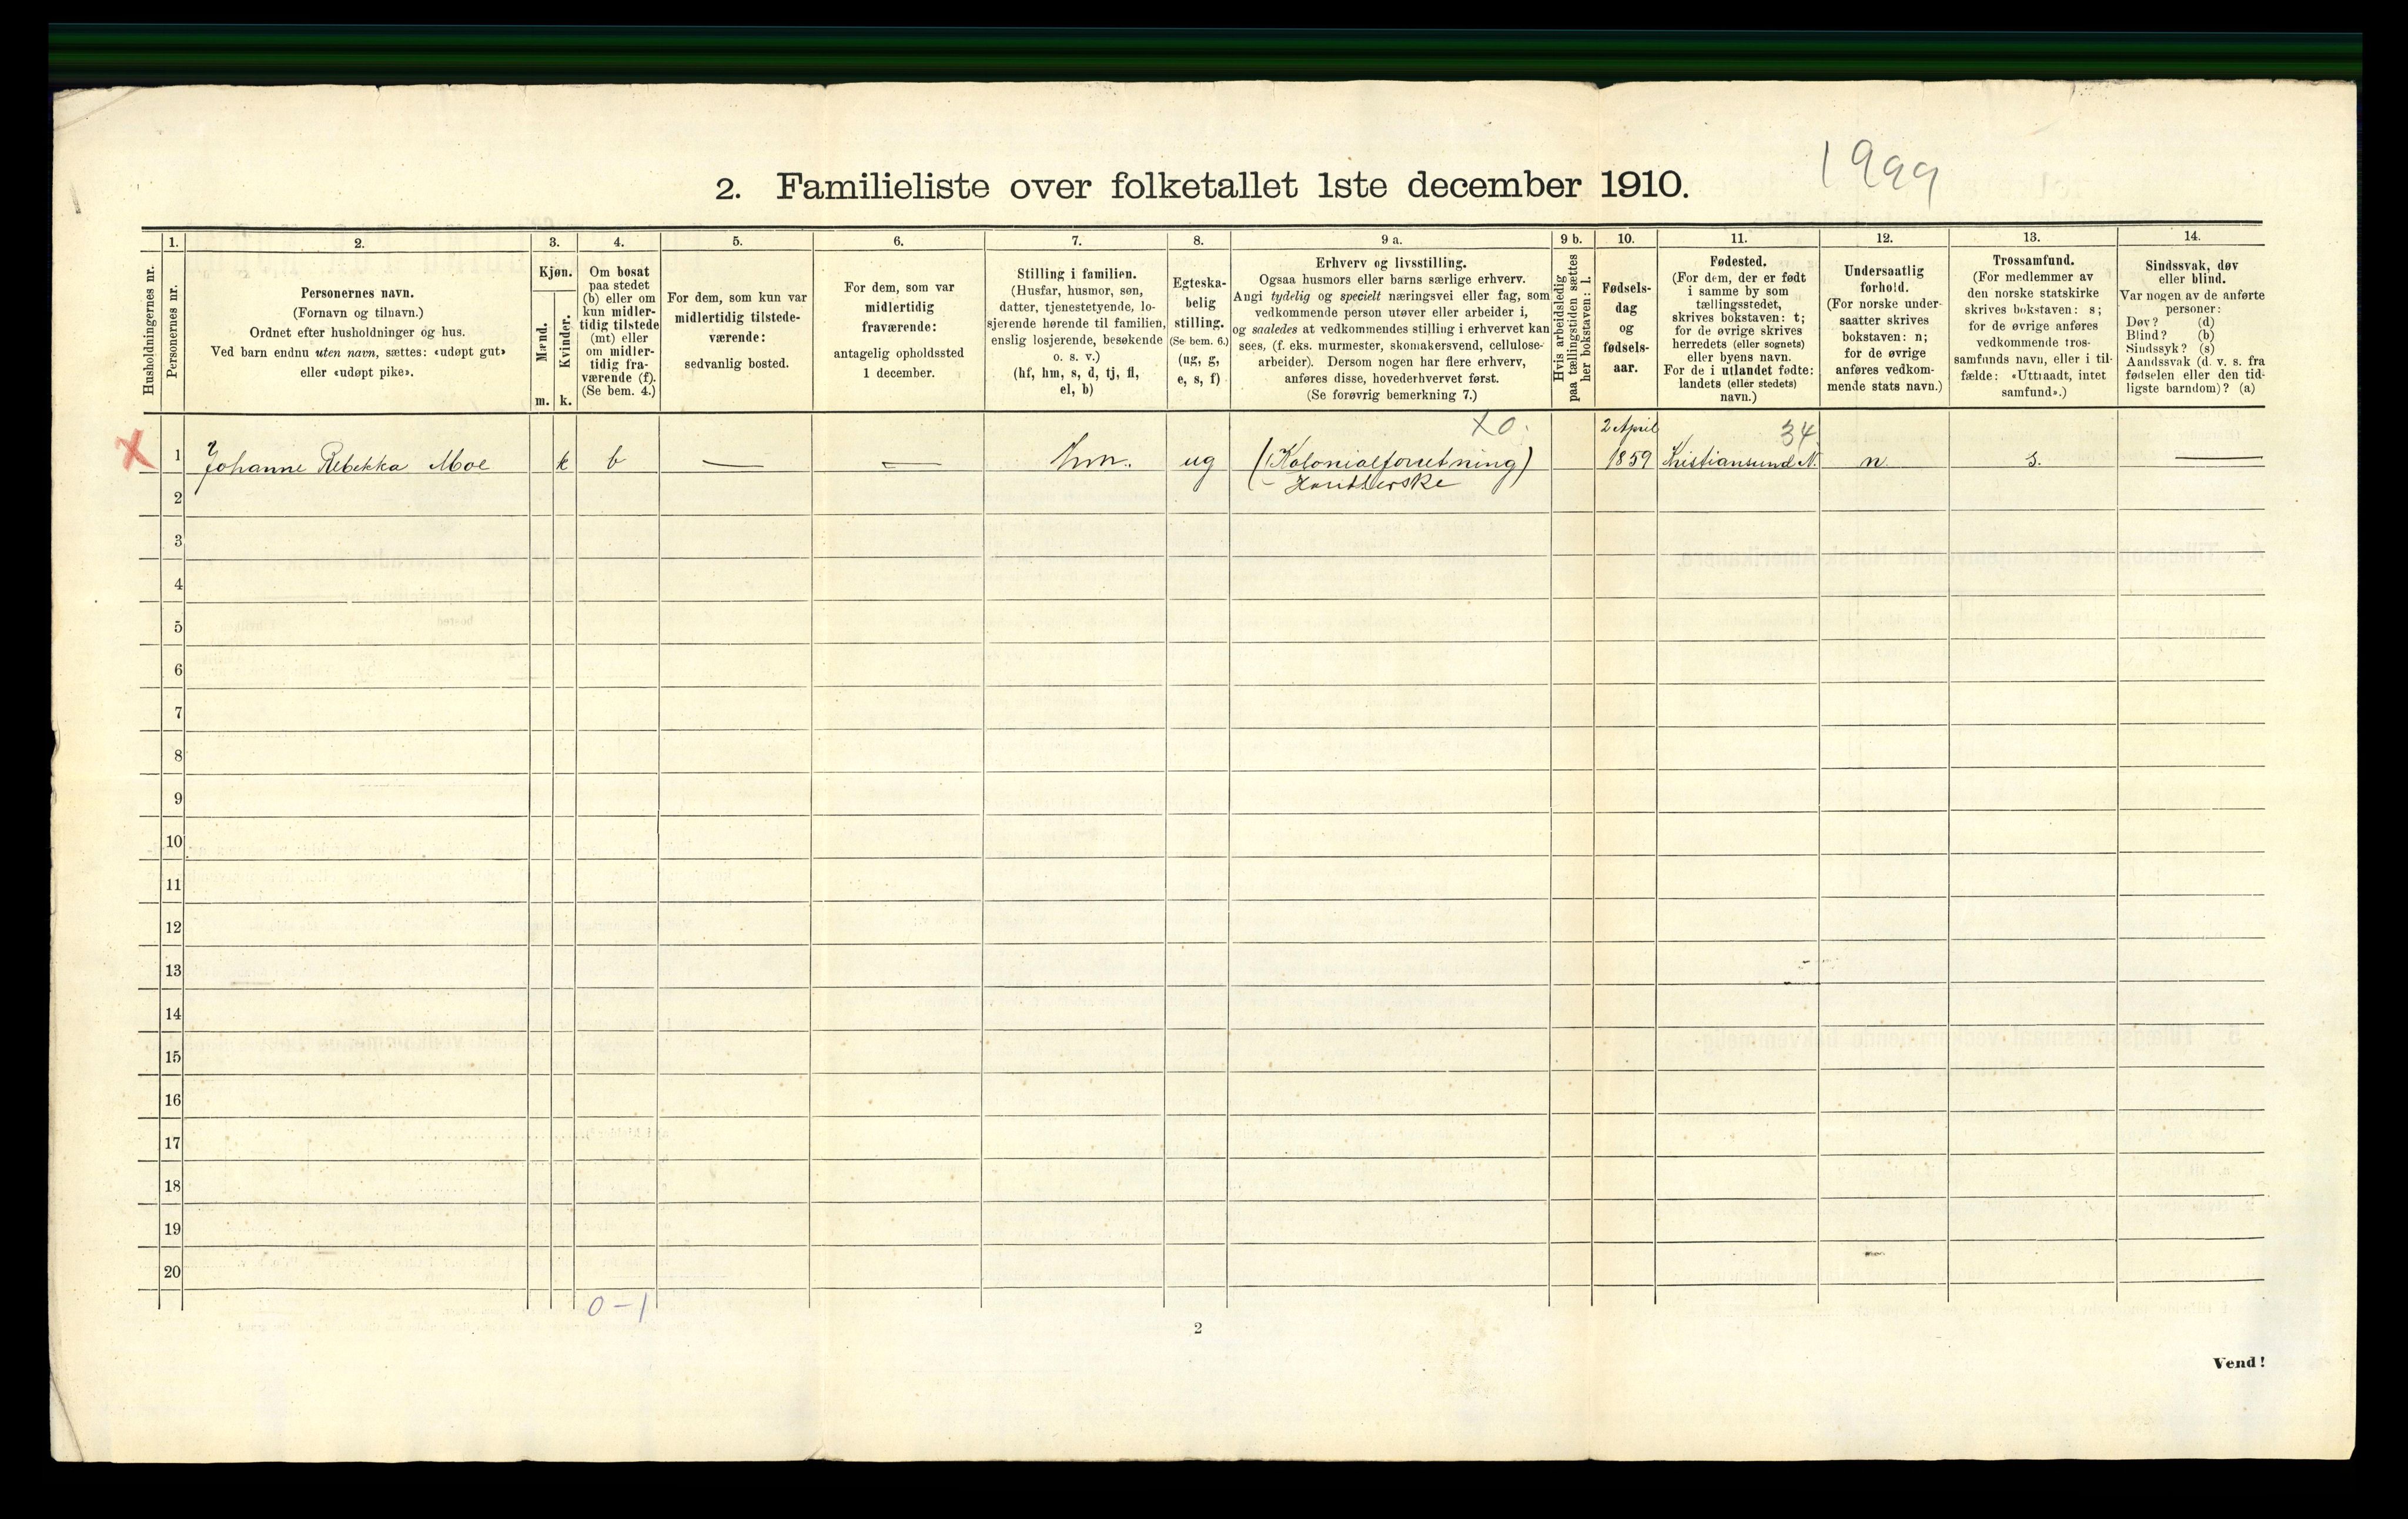 1999
2. Familieliste over folketallet 1ste december 1910.
Husholdningernes nr.
1.
Personernes nr.
2.
Personernes navn.
(Fornavn og tilnavn.)
Ordnet efter husholdninger og hus.
Ved barn endnu uten navn, sættes: «udøpt gut»
eller «udøpt pike».
3.
Kjøn.
Mænd.
m.
Kvinder.
k.
4.
Om bosat
paa stedet
(b) eller om
kun midler-
tidig tilstede
(mt) eller
om midler-
tidig fra-
værende (f).
(Se bem. 4.)
5.
For dem, som kun var
midlertidig tilstede-
værende:
sedvanlig bosted.
6.
For dem, som var
midlertidig
fraværende:
antagelig opholdssted
1 december.
7.
Stilling i familien.
(Husfar, husmor, søn,
datter, tjenestetyende, lo-
sjerende hørende til familien,
enslig losjerende, besøkende
o. s. v.)
(hf, hm, s, d, tj, fl,
el, b)
8.
Egteska-
belig
stilling.
(Se bem. 6.)
(ug, g,
e, s, f)
9 a.
Erhverv og livsstilling.
Ogsaa husmors eller barns særlige erhverv.
Angi tydelig og specielt næringsvei eller fag, som
vedkommende person utøver eller arbeider i,
og saaledes at vedkommendes stilling i erhvervet kan
sees, (f. eks. murmester, skomakersvend, cellulose-
arbeider). Dersom nogen har flere erhverv,
anføres disse, hovederhvervet først.
(Se forøvrig bemerkning 7.)
9 b.
Hvis arbeidsledig
paa tællingstiden sættes
her bokstaven: l.
10.
Fødsels-
dag
og
fødsels-
aar.
11.
Fødested.
(For dem, der er født
i samme by som
tællingsstedet,
skrives bokstaven: t;
for de øvrige skrives
herredets (eller sognets)
eller byens navn.
For de i utlandet fødte:
landets (eller stedets)
navn.)
12.
Undersaatlig
forhold.
(For norske under-
saatter skrives
bokstaven: n;
for de øvrige
anføres vedkom-
mende stats navn.)
13.
Trossamfund.
(For medlemmer av
den norske statskirke
skrives bokstaven: s;
for de øvrige anføres
vedkommende tros-
samfunds navn, eller i til-
fælde: «Uttraadt, intet
samfund».)
14.
Sindssvak, døv
eller blind.
Var nogen av de anførte
personer:
Døv? (d)
Blind? (b)
Sindssyk? (s)
Aandssvak (d. v. s. fra
fødselen eller den tid-
ligste barndom)? (a)
X0. 2 April 34.
X 1 Johanne Rebekka Moe k b — — hm. ug (Kolonialforretning) 1859 Kristiansund N. n. s. —
2
3
4
5
6
7
8
9
10
11
12
13
14
15
16
17
18
19
20
0-1
2
Vend!